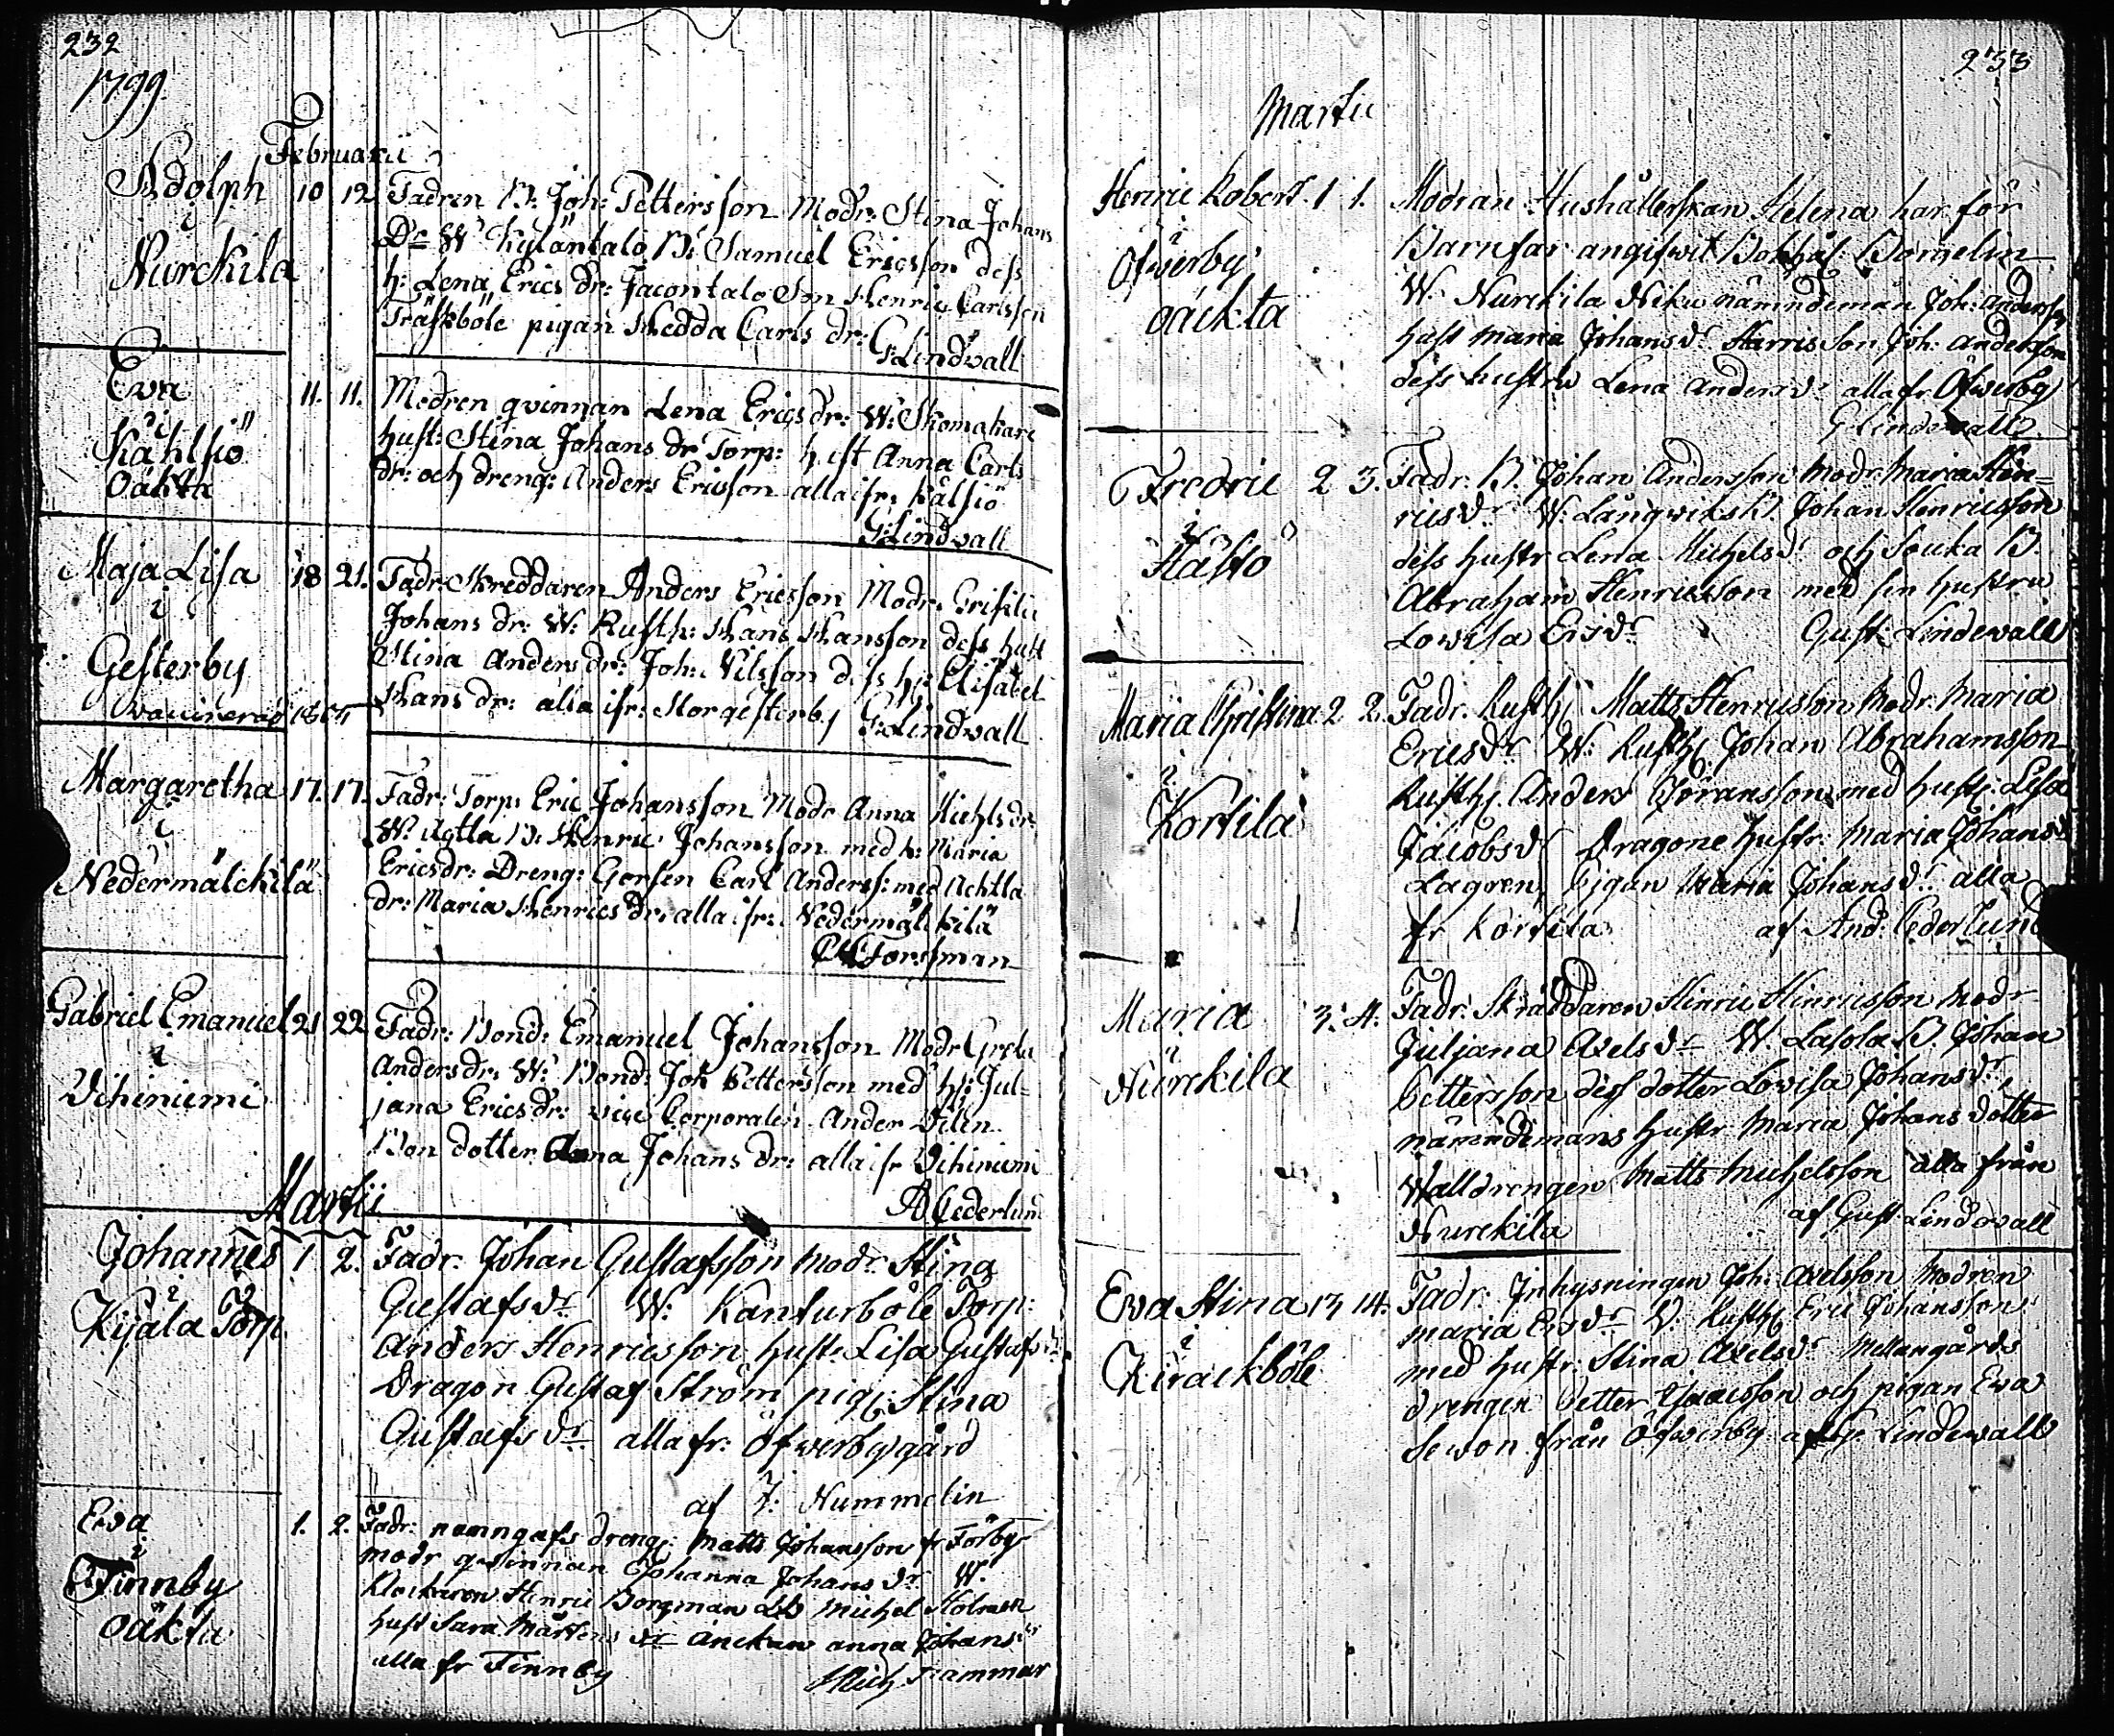 232
1799
Februarii
Adolph 10 12 Fadren B: Joh: Pettersson Modr: Stina Johans
i
Nurckila
Dr W: Kyläntalo B: Samuel Ericsson dess
h: Lena Erics dr: Jacontalo Son Henric Carlsson
Träskböle pigan Hedda Carls dr:
G: Lindvall
Eva 11. 11. Modren qvinnan Lena Erics dr: W: Skomakare
i
Kåhlsiö
Oäkta
hust: Stina Johans dr Torp: hust Anna Carls
dr: och dreng: Anders Ericsson alla ifr: Kålsiö
G: Lindvall
Maja Lisa 18 21. Fadr: Skreddaren Anders Ericsson Modr:
i
Gesterby
vaccinerad
Johans dr: W: Rusth: Hans Hansson dess hust
Stina Anders dr: Joh: Nilsson dess h: Elisabet
Hans dr: alla ifr: Storgesterby G: Lindvall
Margaretha 17. 17. Fadr: Torp: Eric Johansson Modr Anna Michls dr:
i
Nedermälckilä
W: Agtla B: Henric Johansson med h: Maria
Erics dr: Dreng: Carl Anderss: med Achtla
dr: Maria Henrics dr: alla ifr: Nedermälkilä
Forssman
Gabriel Emanuel 21 22 Fadr: Bond: Emanuel Johansson Modr Greta
i
Vihiniemi
Anders dr: W: Bond: Joh Pettersson med h: Jul-
jana Erics dr: vice Corporalen Ander
Bon dotter Anna Johans dr: alla ifr Vihiniemi
A Cederlund
Martii
Johannes 1 2. Fadr. Johan Gustafsson Modr. Stina
i
Kijala Torp
Gustafs dr W: Kanturböle Torp:
Anders Henricsson hust: Lisa Gustafs dr
Dragon Gustaf Ström pig: Stina
Gustafs dr alla fr: Öfwerby gård
af J: Nummelin
Eva 1. 2. Fadr: namngafs dreng: Matts Johansson fr Förby
i
Finnby
oäkta
modr qwinnan Johanna Johans dr W:
Klockaren Henric Borgman Michel Holmsten
Hust Sara Mårtens dr anna Johans dr
alla fr Finnby Mich Hammar
233
Martii
Henric Robert 1 1. Modran Hushållerskan Helena har för
i
Öfwerby
oäckta
Barnfar angifwit Bokhål: Bomelin
W: Nurckila Niku nämndeman Joh: Andersson
hust maria Johans dr Harris Son Joh: Andersson
dess hustru Lena Anders dr alla fr Öfwerby
G Lindewall
Fredric 2 3. Fadr: B: Johan Andersson modr Maria Hen-
i
rics dr W: Långwiks B. Johan Henricsson
dess hustr Lena Michels dr och Souka B.
Abraham Henricsson med sin hustru
Lowisa Ers dr Gust: Lindewall
Maria Christina 2 2. Fadr. Rusth: Matts Henricsson Modr. Maria
i
Kortila
Erics dr W: Rusth: Johan Abrahamsson
Rusth: Anders Göransson med hust: Lisa
Jacobs dr Dragone hustr: Maria Johans dr
Lagren pigan Maria Johans dr alla
fr Kortila af And: Cederlund
Maria 3. 4. Fadr: Skräddaren Hinric Hinricsson modr
i
Nurckila
Juljana Axels dr W: Lasola B. Johan
Pettersson dess dotter Lovisa Johans dr
nämndemans hustr Maria Johans dotter
Walldrengen Matts Michelsson alla från
Nurckila af Gust Lindewall
Eva Stina 13 14. Fadr: Inhysningen Joh: Axelsson Modren
i
maria Ers dr W: Rusth: Eric Johansson
med hustr: Stina Axels dr Mellangårds
drengen Petter Isacsson och pigan Eva
från Öfwerby af G: Lindewall